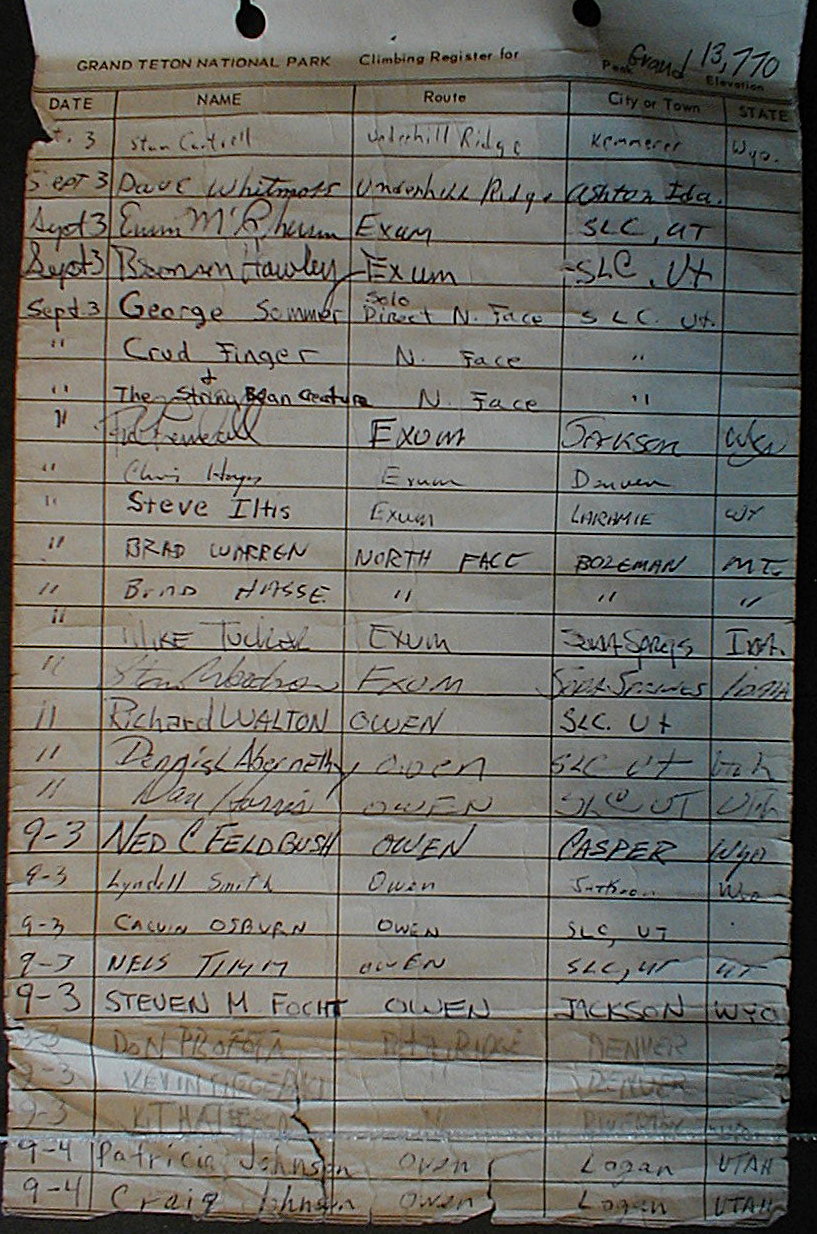 GRAND TETON NATIONAL PARK Climbing Register for Peak Grand 13,770 Elevation
DATE NAME Route City or Town STATE
t. 3 Stan Underhill Ridge Kemmerer Wyo.
Sept 3 Dave Whitmoss Underhill Ridge Ashton Ida.
Sept 3 Exum SLC, UT
Sept 3 Bronson Hawley Exum SLC, Ut
Sept 3 George Sommer Solo Direct N. Face SLC. Ut.
" Crud Finger N. Face "
" & The String Bean Creature N. Face "
" Exum Jackson Wyo
" Chris Exum Denver
" Steve Iltis Exum LARAMIE WY
" BRAD WARREN NORTH FACE BOZEMAN MT.
" BRAD HASSE " " "
" MIKE Tucker Exum
" Stan Woodrow EXUM SODA SPRINGS
" Richard WALTON OWEN SLC. Ut
" Dennis L Abernethy Owen SLC Ut Utah
" Dan Harris OWEN SLC UT Utah
9-3 NED C FELDBUSH OWEN CASPER Wyo
9-3 Lyndell Smith Owen Jackson
9-3 CALVIN OSBURN OWEN SLC, UT
9-3 NELS TIMM OWEN SLC, UT UT
9-3 STEVEN M FOCHT OWEN JACKSON WYO
9-3 DON PROFOTA RIDGE DENVER
9-3 KEVIN DENVER
9-3 KIT
9-4 Patricia Johnson Owen Logan UTAH
9-4 Craig Johnson Owen Logan UTAH